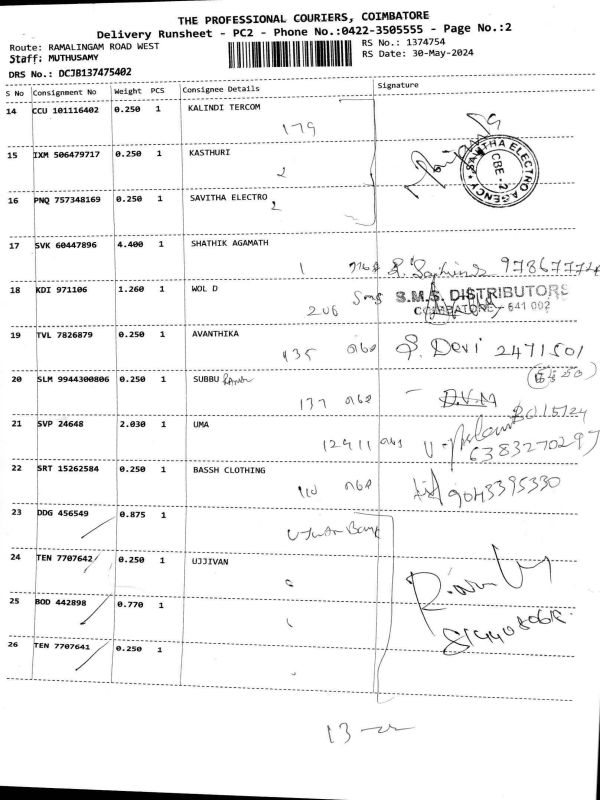 THE PROFESSIONAL COURIERS, COIMBATORE
Delivery Runsheet - PC2 - Phone No.:0422-3505555 - Page No.:2
Route: RAMALINGAM ROAD WEST
RS No.: 1374754
Staff: MUTHUSAMY
RS Date: 30-May-2024
DRS No.: DCJB137475402
S No Consignment No Weight PCS Consignee Details Signature
14 CCU 101116402 0.250 1 KALINDI TERCOM
179
15 IXM 506479717 0.250 1 KASTHURI
2
SAVITHA ELECTRO AGENCY CBE-2
16 PNQ 757348169 0.250 1 SAVITHA ELECTRO
2
17 SVK 60447896 4.400 1 SHATHIK AGAMATH
1
18 KDI 971106 1.260 1 WOL D
206 S.M.S. DISTRIBUTORS
COIMBATORE - 641 002
19 TVL 7826879 0.250 1 AVANTHIKA
135 Devi 2471501
20 SLM 9944300806 0.250 1 SUBBU
137 D.V.M
21 SVP 24648 2.030 1 UMA
6383270297
22 SRT 15262584 0.250 1 BASSH CLOTHING
110 9043395330
23 DDG 456549 0.875 1
24 TEN 7707642 0.250 1 UJJIVAN
25 BOD 442898 0.770 1
26 TEN 7707641 0.250 1
13